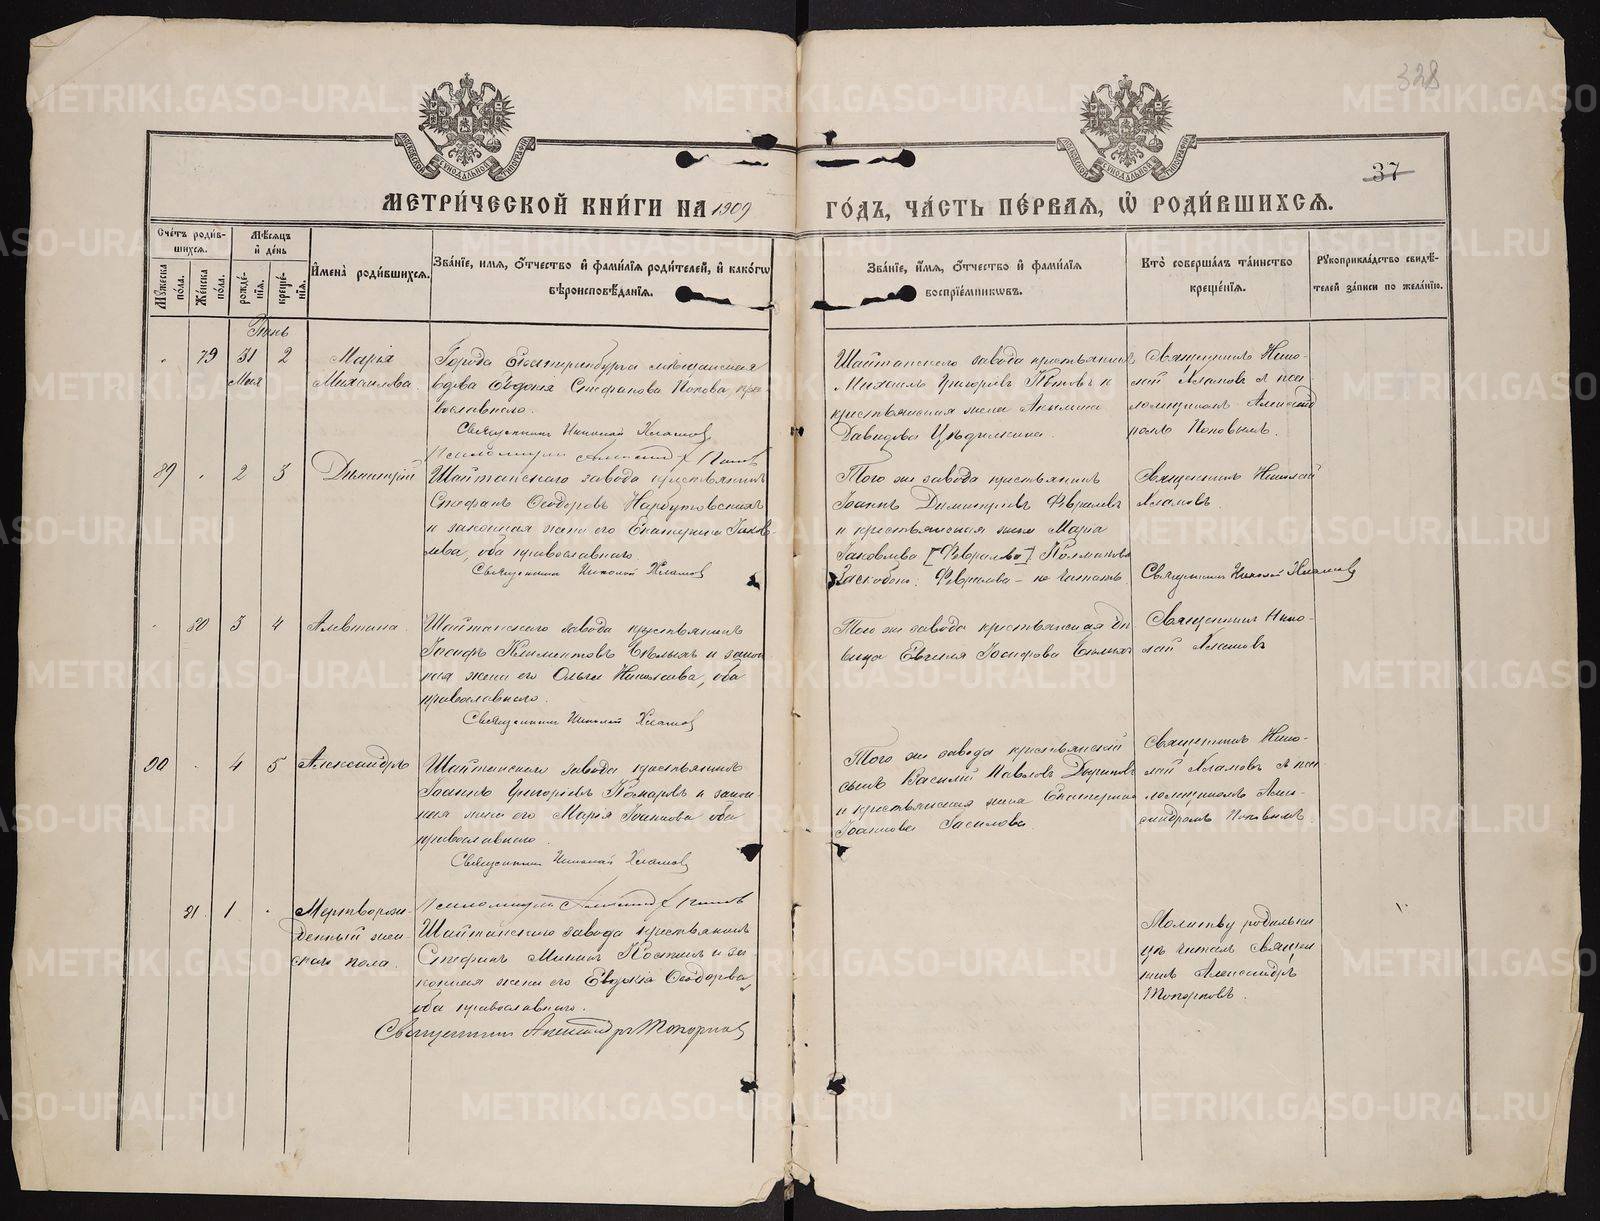 328
37
МОСКОВСКОЙ СѴНОДАЛЬНОЙ ТИПОГРАФІИ
МОСКОВСКОЙ СѴНОДАЛЬНОЙ ТИПОГРАФІИ
МЕТРИ́ЧЕСКОЙ КНИ́ГИ НА 1909 ГО́ДЪ, ЧА́СТЬ ПЕ́РВАЯ, Ѡ РОДИ́ВШИХСЯ.
Сче́тъ роди́в-
шихся.
Мѣ́сяцъ
и҆ де́нь
Мꙋ́жеска по́ла.
Же́нска по́ла.
рожде́-
нїя.
креще́-
нїя.
И҆мена̀ роди́вшихся.
Зва́нїе, и҆мя, ѻ҆́тчество и҆ фами́лїя роди́телей, и҆ како́гѡ
вѣроисповѣ́данїя.
Зва́нїе, и҆́мя, ѻ҆́тчество и҆ фами́лїя
воспрїе́мникѡвъ.
Кто̀ соверша́лъ та́инство
креще́нїя.
Рꙋкоприкла́дство свидѣ́-
телей за́писи по жела́нїю.
Іюнь
79 31 2
Мая
Марія
Михаилова
Города Екатеринбурга мѣщанская
вдова Ѳедосія Стефанова Попова, пра
вославнаго.
Священникъ Николай Хламовъ
Псаломщикъ Александръ Поповъ
Шайтанскаго завода крестьянинъ
Михаилъ Григорьевъ Пѣтовъ и
крестьянская жена Акилина
Давидова Цѣдилкина.
Священникъ Нико-
лай Хламовъ съ пса
ломщикомъ Александ
ромъ Поповымъ.
89 2 3
Димитрій
Шайтанскаго завода крестьянинъ
Стефанъ Ѳеодоровъ Нарбутовскихъ
и законная жена его Екатерина Іаков-
лева, оба православнаго
Священникъ Николай Хламовъ
Того же завода крестьянинъ
Іоаннъ Димитріевъ Февралевъ
и крестьянская жена Марія
Іаковлева [Февралева]
Февралева – не читать
Священникъ Николай
Хламовъ.
Священникъ Николай Хламовъ
80 3 4
Алевтина
Шайтанскаго завода крестьянинъ
Іосифъ Климентовъ Бѣлыхъ и закон
ная жена его Ольга Николаева, оба
православнаго.
Священникъ Николай Хламовъ
Того же завода крестьянская дѣ
вица Евгенія Іосифова Бѣлыхъ
Священникъ Нико-
лай Хламовъ
90 4 5
Александръ
Шайтанскаго завода крестьянинъ
Іоаннъ Григорьевъ Пономаревъ и закон-
ная жена его Марія Іоаннова оба
православнаго.
Священникъ Николай Хламовъ
Псаломщикъ Александръ Поповъ
Того же завода крестьянскій
сынъ Василій Павловъ
и крестьянская жена Екатерина
Іоаннова Гасилова.
Священникъ Нико-
лай Хламовъ съ пса
ломщикомъ Алек-
сандромъ Поповымъ.
81 1
Мертворож-
денный жен
скаго пола.
Шайтанскаго завода крестьянинъ
Стефанъ Мининъ Костинъ и за
конная жена его Евдокія Ѳеодорова
оба православнаго.
Священникъ Александръ Топорковъ
Молитву родильни
цѣ читалъ священ
никъ Александръ
Топорковъ.
METRIKI.GASO-URAL.RU